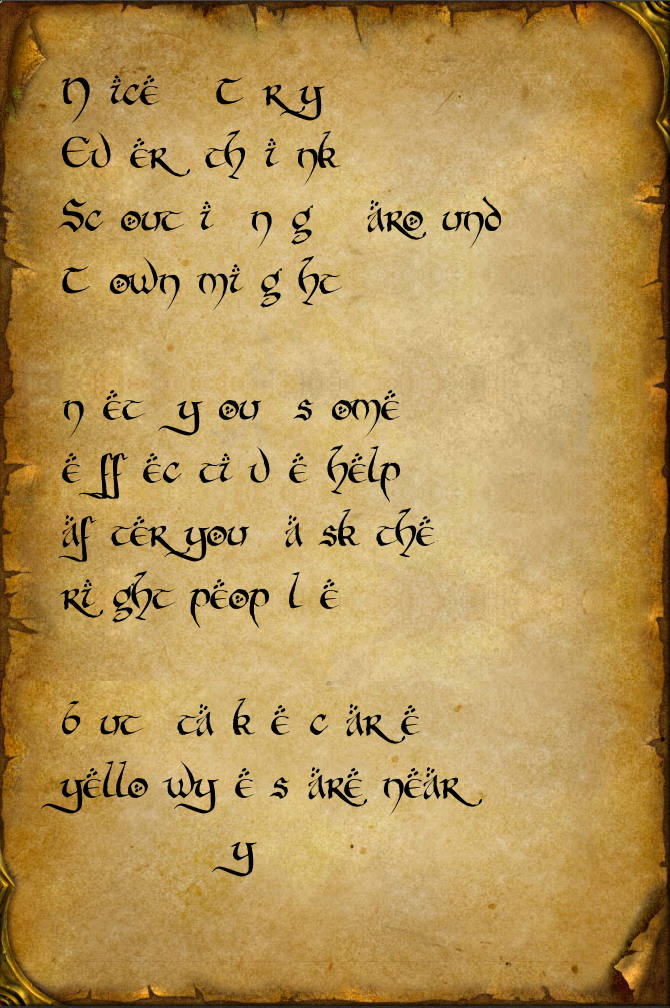 Nice Try
Ever think
Scouting around
Town might
net you some
effective help
after you ask the
right people
but take care
yellow yes are near
y